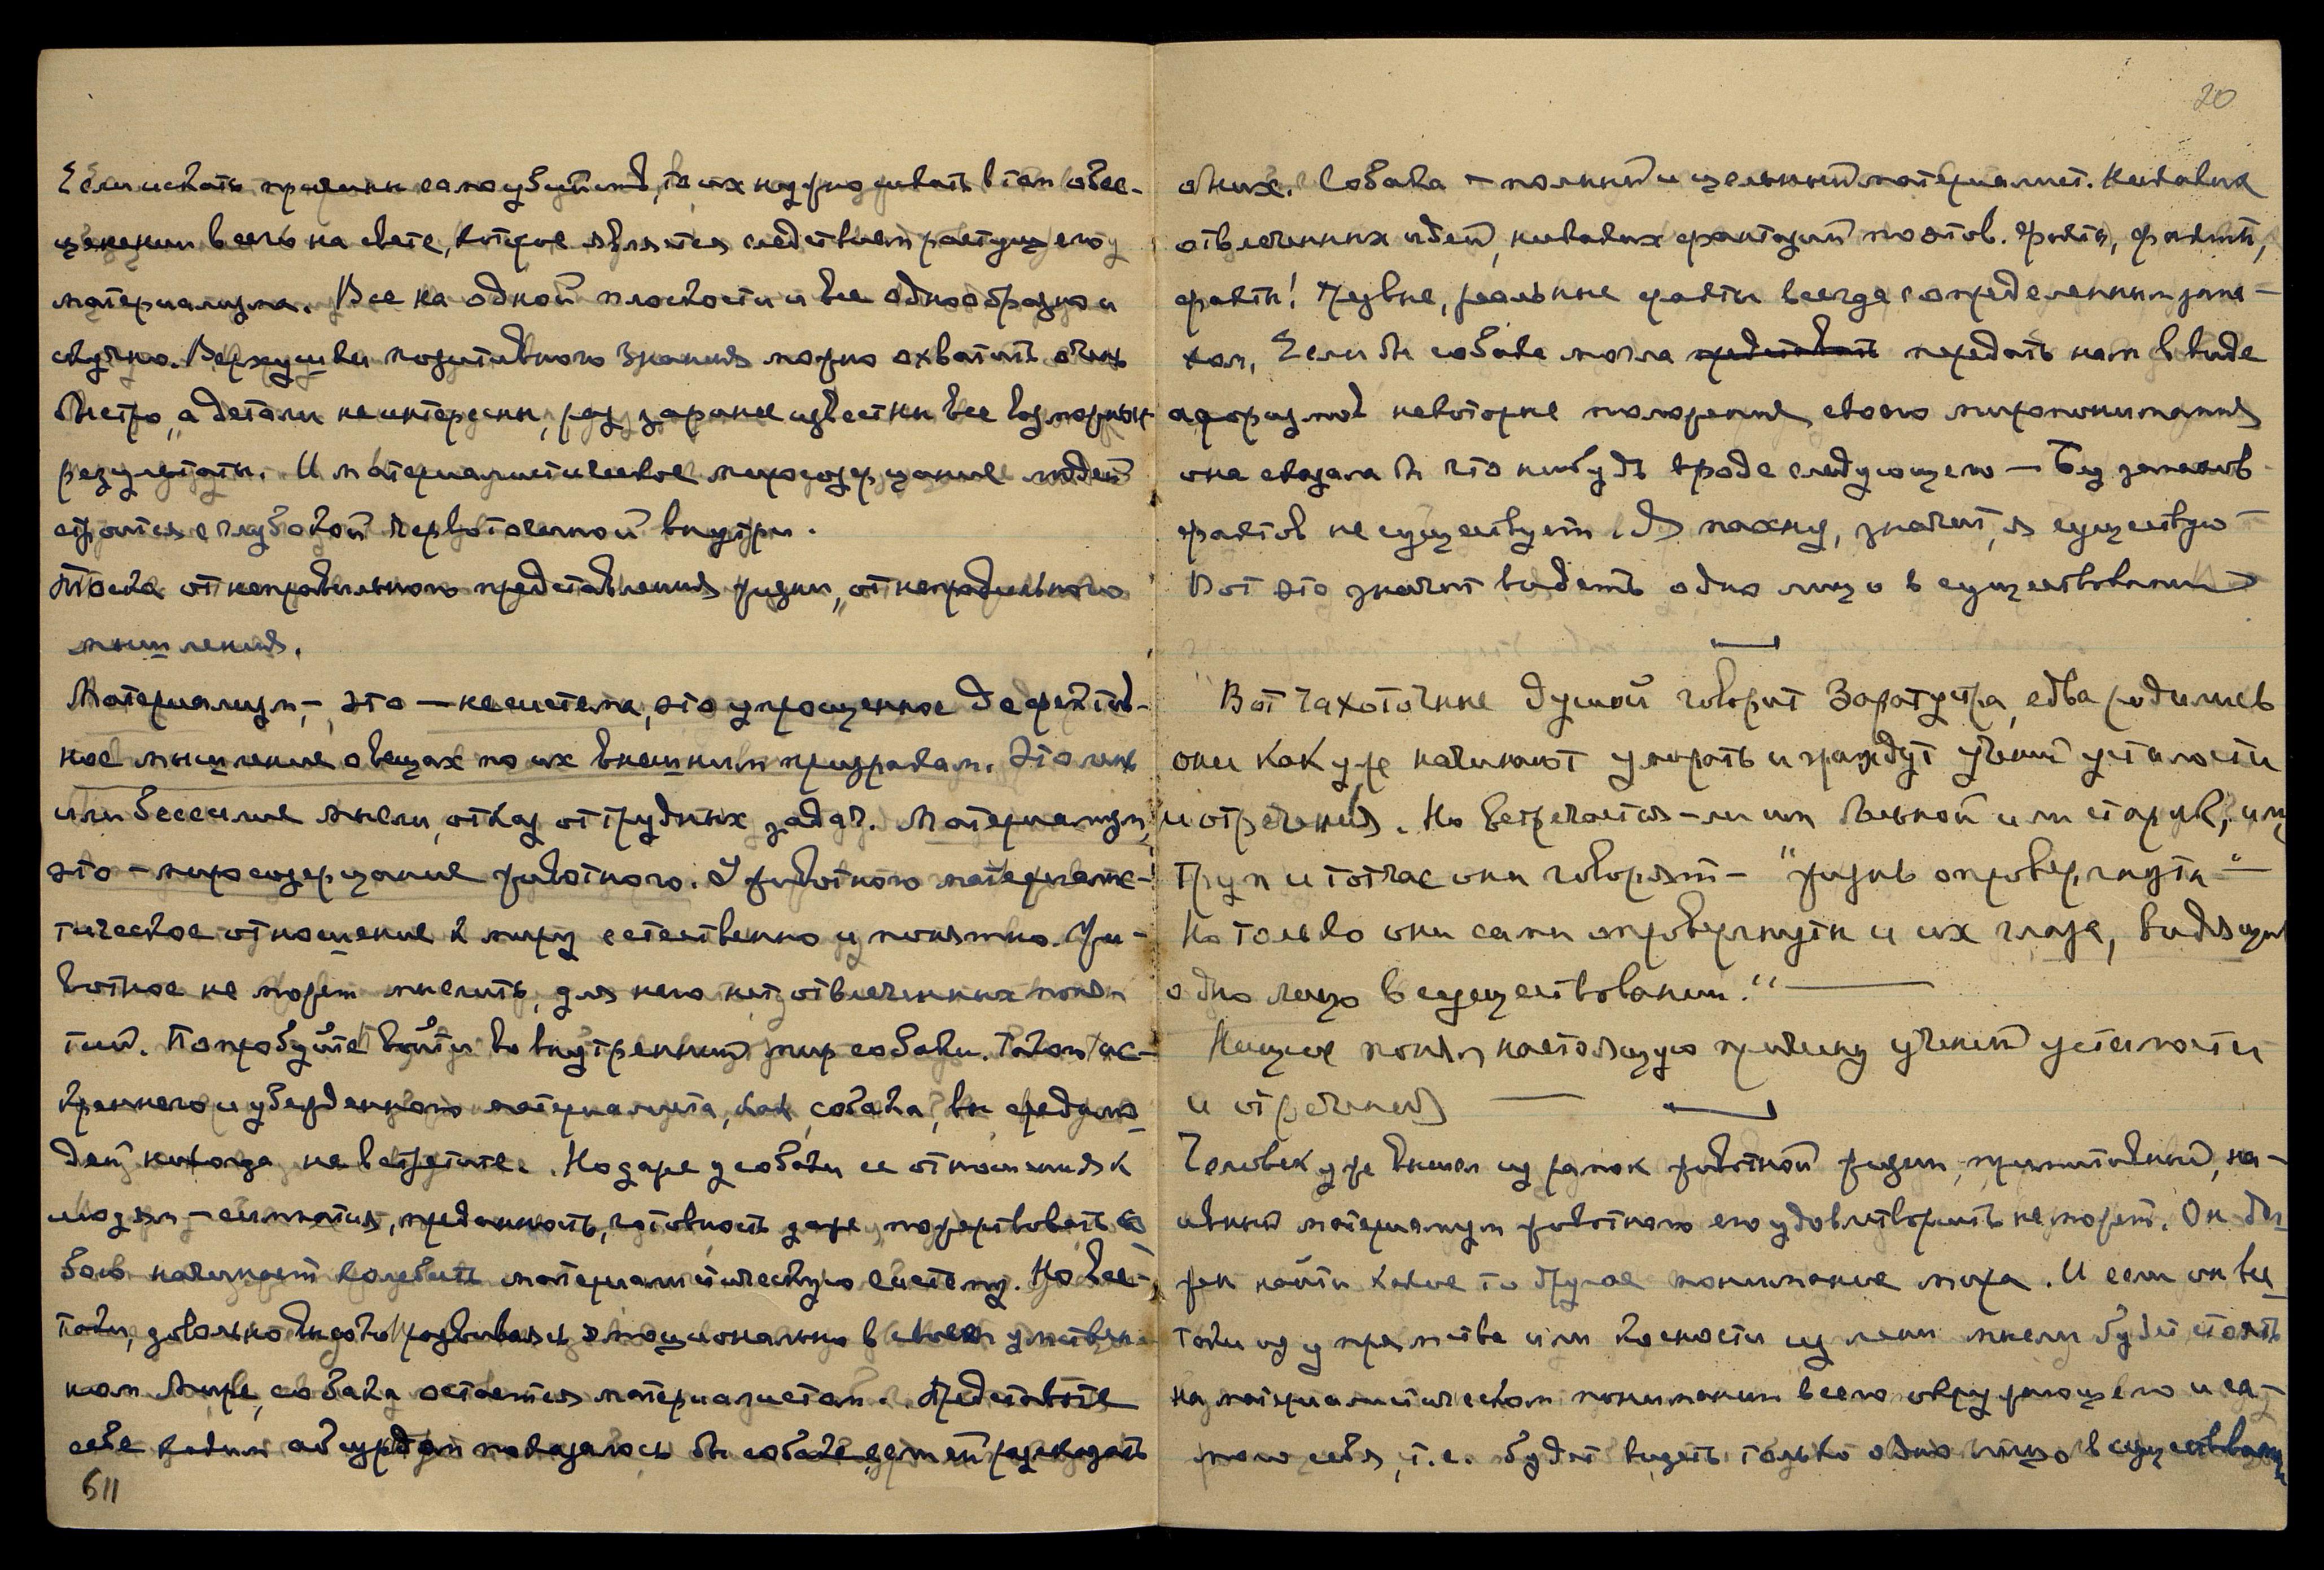 Если искать причины самоубийств, то их нужно искать в том обес-
ценении всего на свете, которое является следствием растущего
материализма. Все на одной плоскости и все однообразно и
скучно. Верхушки позитивного знания можно охватить очень
быстро, а детали не интересны, раз заранее известны все возможные
результаты. И материалистическое миросозерцание людей
строится с глубокой червоточиной внутри.
Тоска от неправильного представления жизни, от неправильного
мышления.
Материализм, – это – не система, это упрощенное дефектив-
ное мышление о вещах по их внешним признакам. Это лень
или бессилие мысли, отказ от трудных задач. Материализм,
это – миросозерцание животного. У животного материалис-
тическое отношение к миру естественно и понятно. Жи-
вотное не может мыслить, для него нет отвлеченных поня-
тий. Попробуйте войти во внутренний мир собаки. Такого ис-
креннего и убежденного материалиста, как собака, вы среди лю-
дей никогда не встретите. Но даже у собаки ее отношения к
людям – симпатия, преданность, готовность даже пожертвовать со-
бою начинает колебать материалистическую систему. Но все-
таки, довольно высоко развиваясь эмоционально в своем умствен-
ном мире, собака остается материалистом. Представьте
себе каким абсурдом показалось бы собаке, если ей рассказать
611
20
о них. Собака – полный и цельный материалист. Никаких
отвлеченных идей, никаких фантазий поэтов. Факты, факты,
факты! Трезвые, реальные факты всегда с определенным запа-
хом. Если бы собака могла представить передать нам в виде
афоризмов некоторые положения своего миропонимания
она сказала бы что нибудь вроде следующего – Без запахов
фактов не существует. Я пахну, значит, я существую –
Вот это значит видеть одно лицо в существовании
Вот чахоточные душой говорит Заратустра, едва родились
они как уже начинают умирать и жаждут учений усталости
и отречения. Но встречается-ли им больной или старик, или
труп и тотчас они говорят – "жизнь опровергнута" –
Но только они сами опровергнуты и их глаза, видящие
одно лицо в существовании." –
Ницше понял настоящую причину учений усталости
и отречения –
Человек уже вышел из рамок животной жизни, примитивный, на-
ивный материализм животного его удовлетворить не может. Он дол-
жен найти какое то другое понимание мира. И если он все
таки из упрямства или косности из лени мысли будет стоять
на материалистическом понимании всего окружающего и са-
мого себя, т.е. будет видеть только одно лицо в существовании